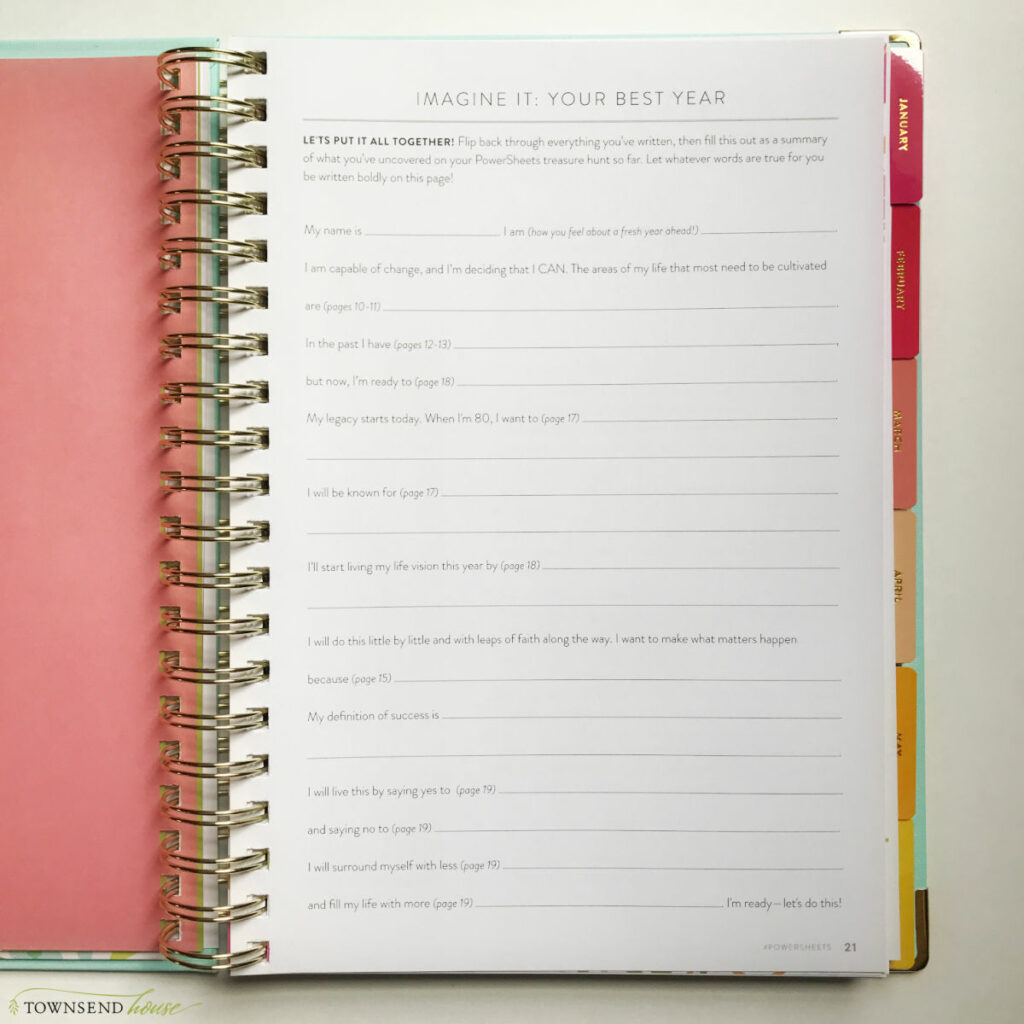 IMAGINE IT: YOUR BEST YEAR
LET'S PUT IT ALL TOGETHER! Flip back through everything you've written, then fill this out as a summary
of what you've uncovered on your PowerSheets treasure hunt so far. Let whatever words are true for you
be written boldly on this page!
My name is I am (how you feel about a fresh year ahead!)
I am capable of change, and I'm deciding that I CAN. The areas of my life that most need to be cultivated
are (pages 10-11)
In the past I have (pages 12-13)
but now, I'm ready to (page 18)
My legacy starts today. When I'm 80, I want to (page 17)
I will be known for (page 17)
I'll start living my life vision this year by (page 18)
I will do this little by little and with leaps of faith along the way. I want to make what matters happen
because (page 15)
My definition of success is
I will live this by saying yes to (page 19)
and saying no to (page 19)
I will surround myself with less (page 19)
and fill my life with more (page 19) I'm ready—let's do this!
#POWERSHEETS 21
JANUARY
FEBRUARY
MARCH
APRIL
MAY
TOWNSEND house